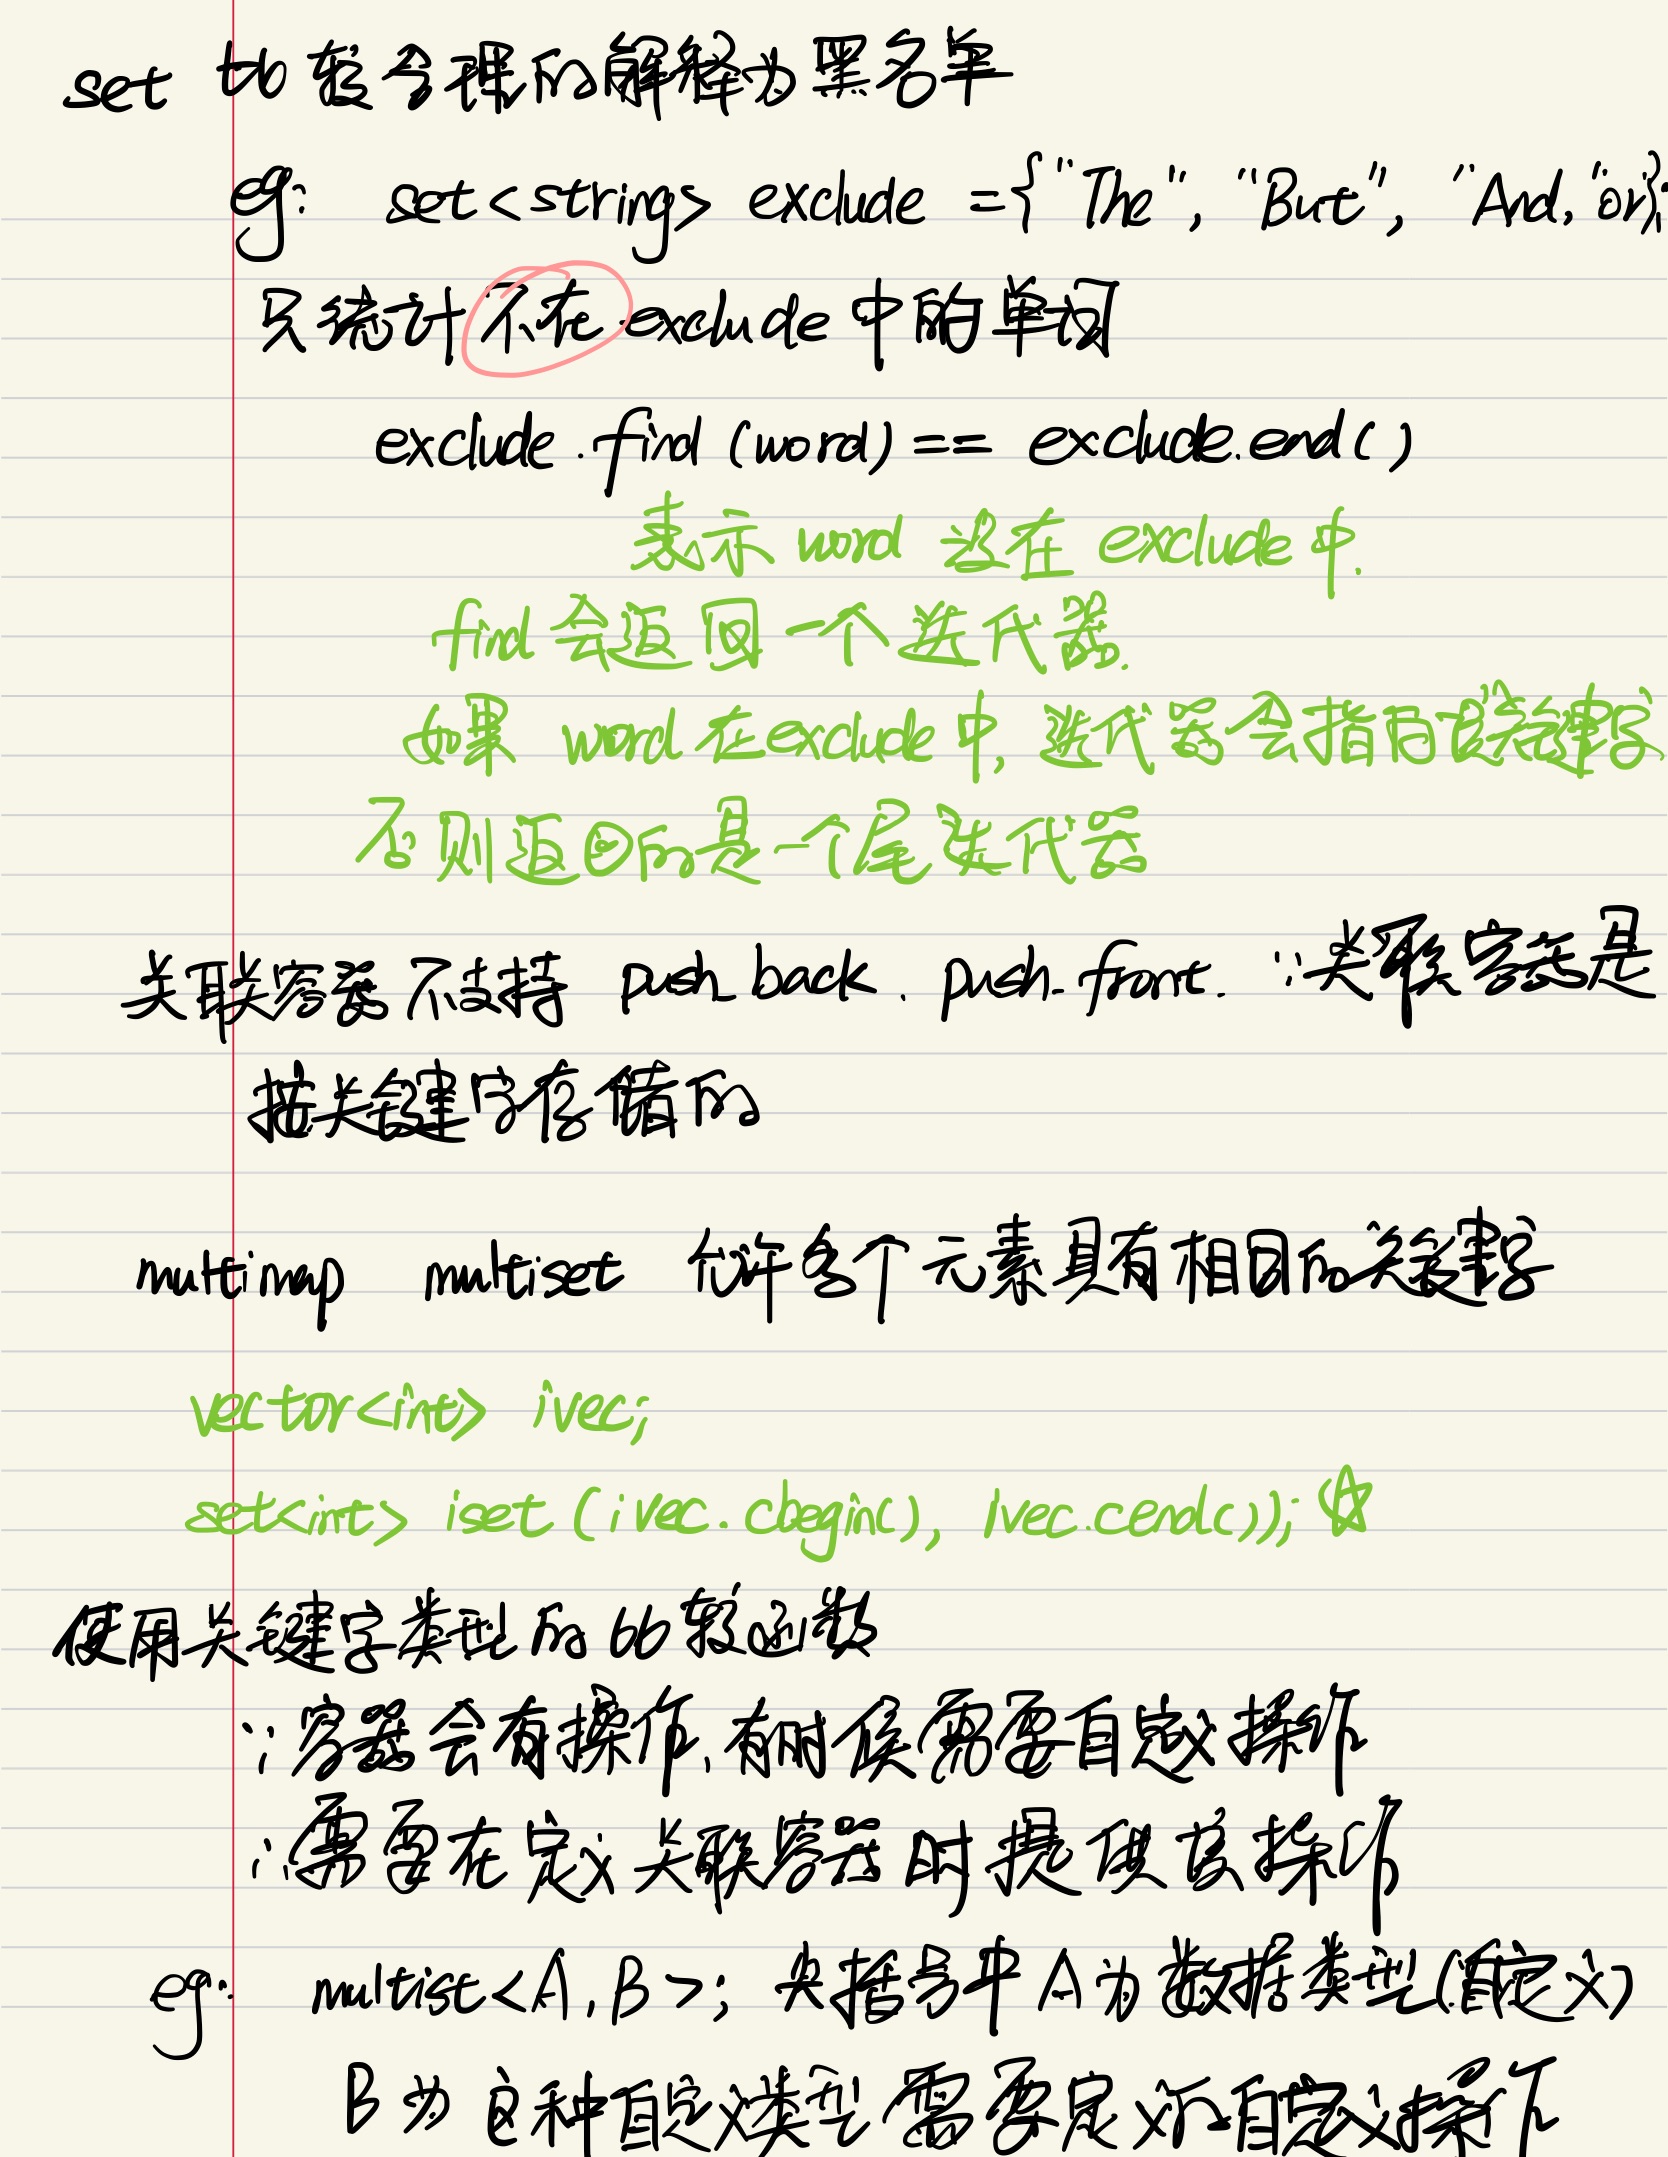 set 比较合理的解释为黑名单
eg: set<string> exclude ={"The", "But", "And, "or};
只统计不在exclude中的单词
exclude.find(word) == exclude.end()
表示 word 没在 exclude中.
find会返回一个迭代器.
如果 word在exclude中, 迭代器会指向该关键字
否则返回的是一个尾迭代器
关联容器不支持 push_back、push_front. ∵关联容器是
按关键字存储的
multimap multiset 允许多个元素具有相同的关键字
vector<int> ivec;
set<int> iset (ivec.cbegin(), ivec.cend()); ☆
使用关键字类型的比较函数
∵容器会有操作,有时候需要自定义操作
∴需要在定义关联容器时提供该操作
eg: multist<A,B>; 尖括号中A为数据类型(自定义)
B为这种自定义类型需要定义的自定义操作